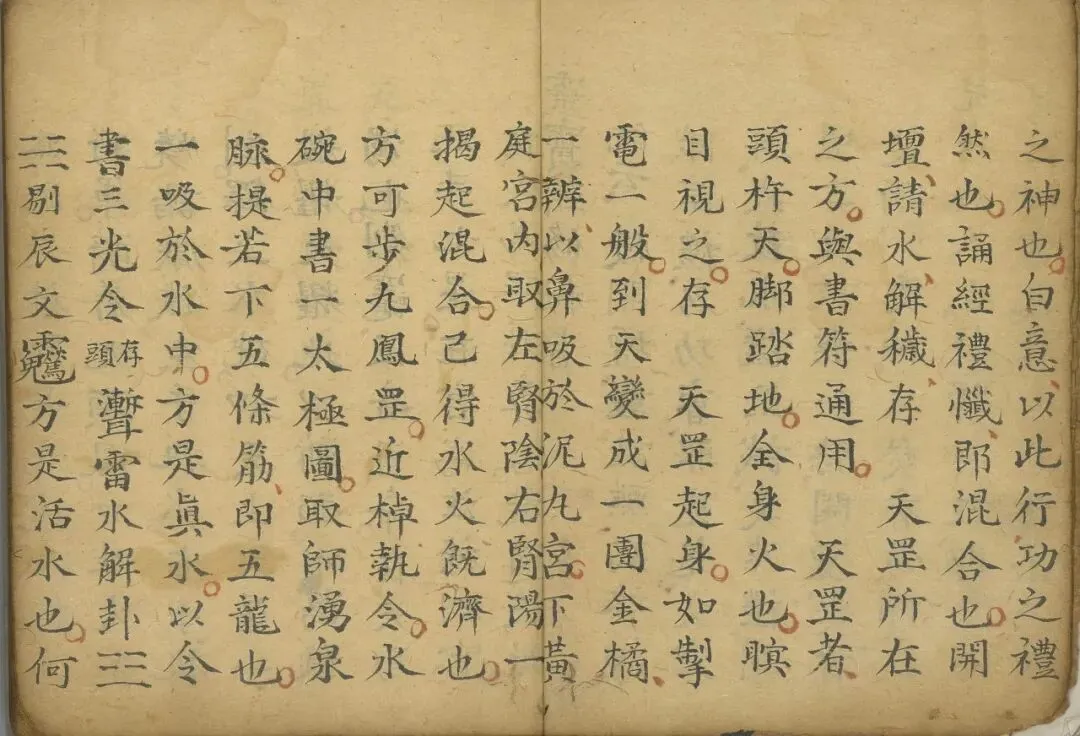 之神也。白意以此行功之禮
然也。誦經禮懺即混合也。開
壇請水解穢存 天罡所在
之方。與書符通用。 天罡者
頭杵天。脚踏地。全身火也。瞑
目視之。存 天罡起身。如掣
電一般。到天變成一團金橘
一辦以鼻吸於泥丸宮。下黃
庭宮内取左腎陰右腎陽一
揭起混合。己得水火既濟也。
方可步九鳳罡。近棹執令。水
碗中書一太極圖。取師湧泉
脉。提若下五條筋即五龍也。
一吸於水中。方是眞水。以令
書三光令存頭雷水解卦
剔辰文方是活水也。何